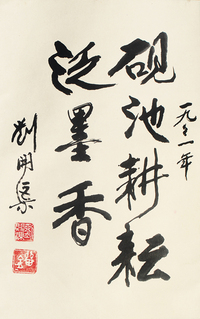 砚池耕耘
泛墨香
一九九一年
刘明渠